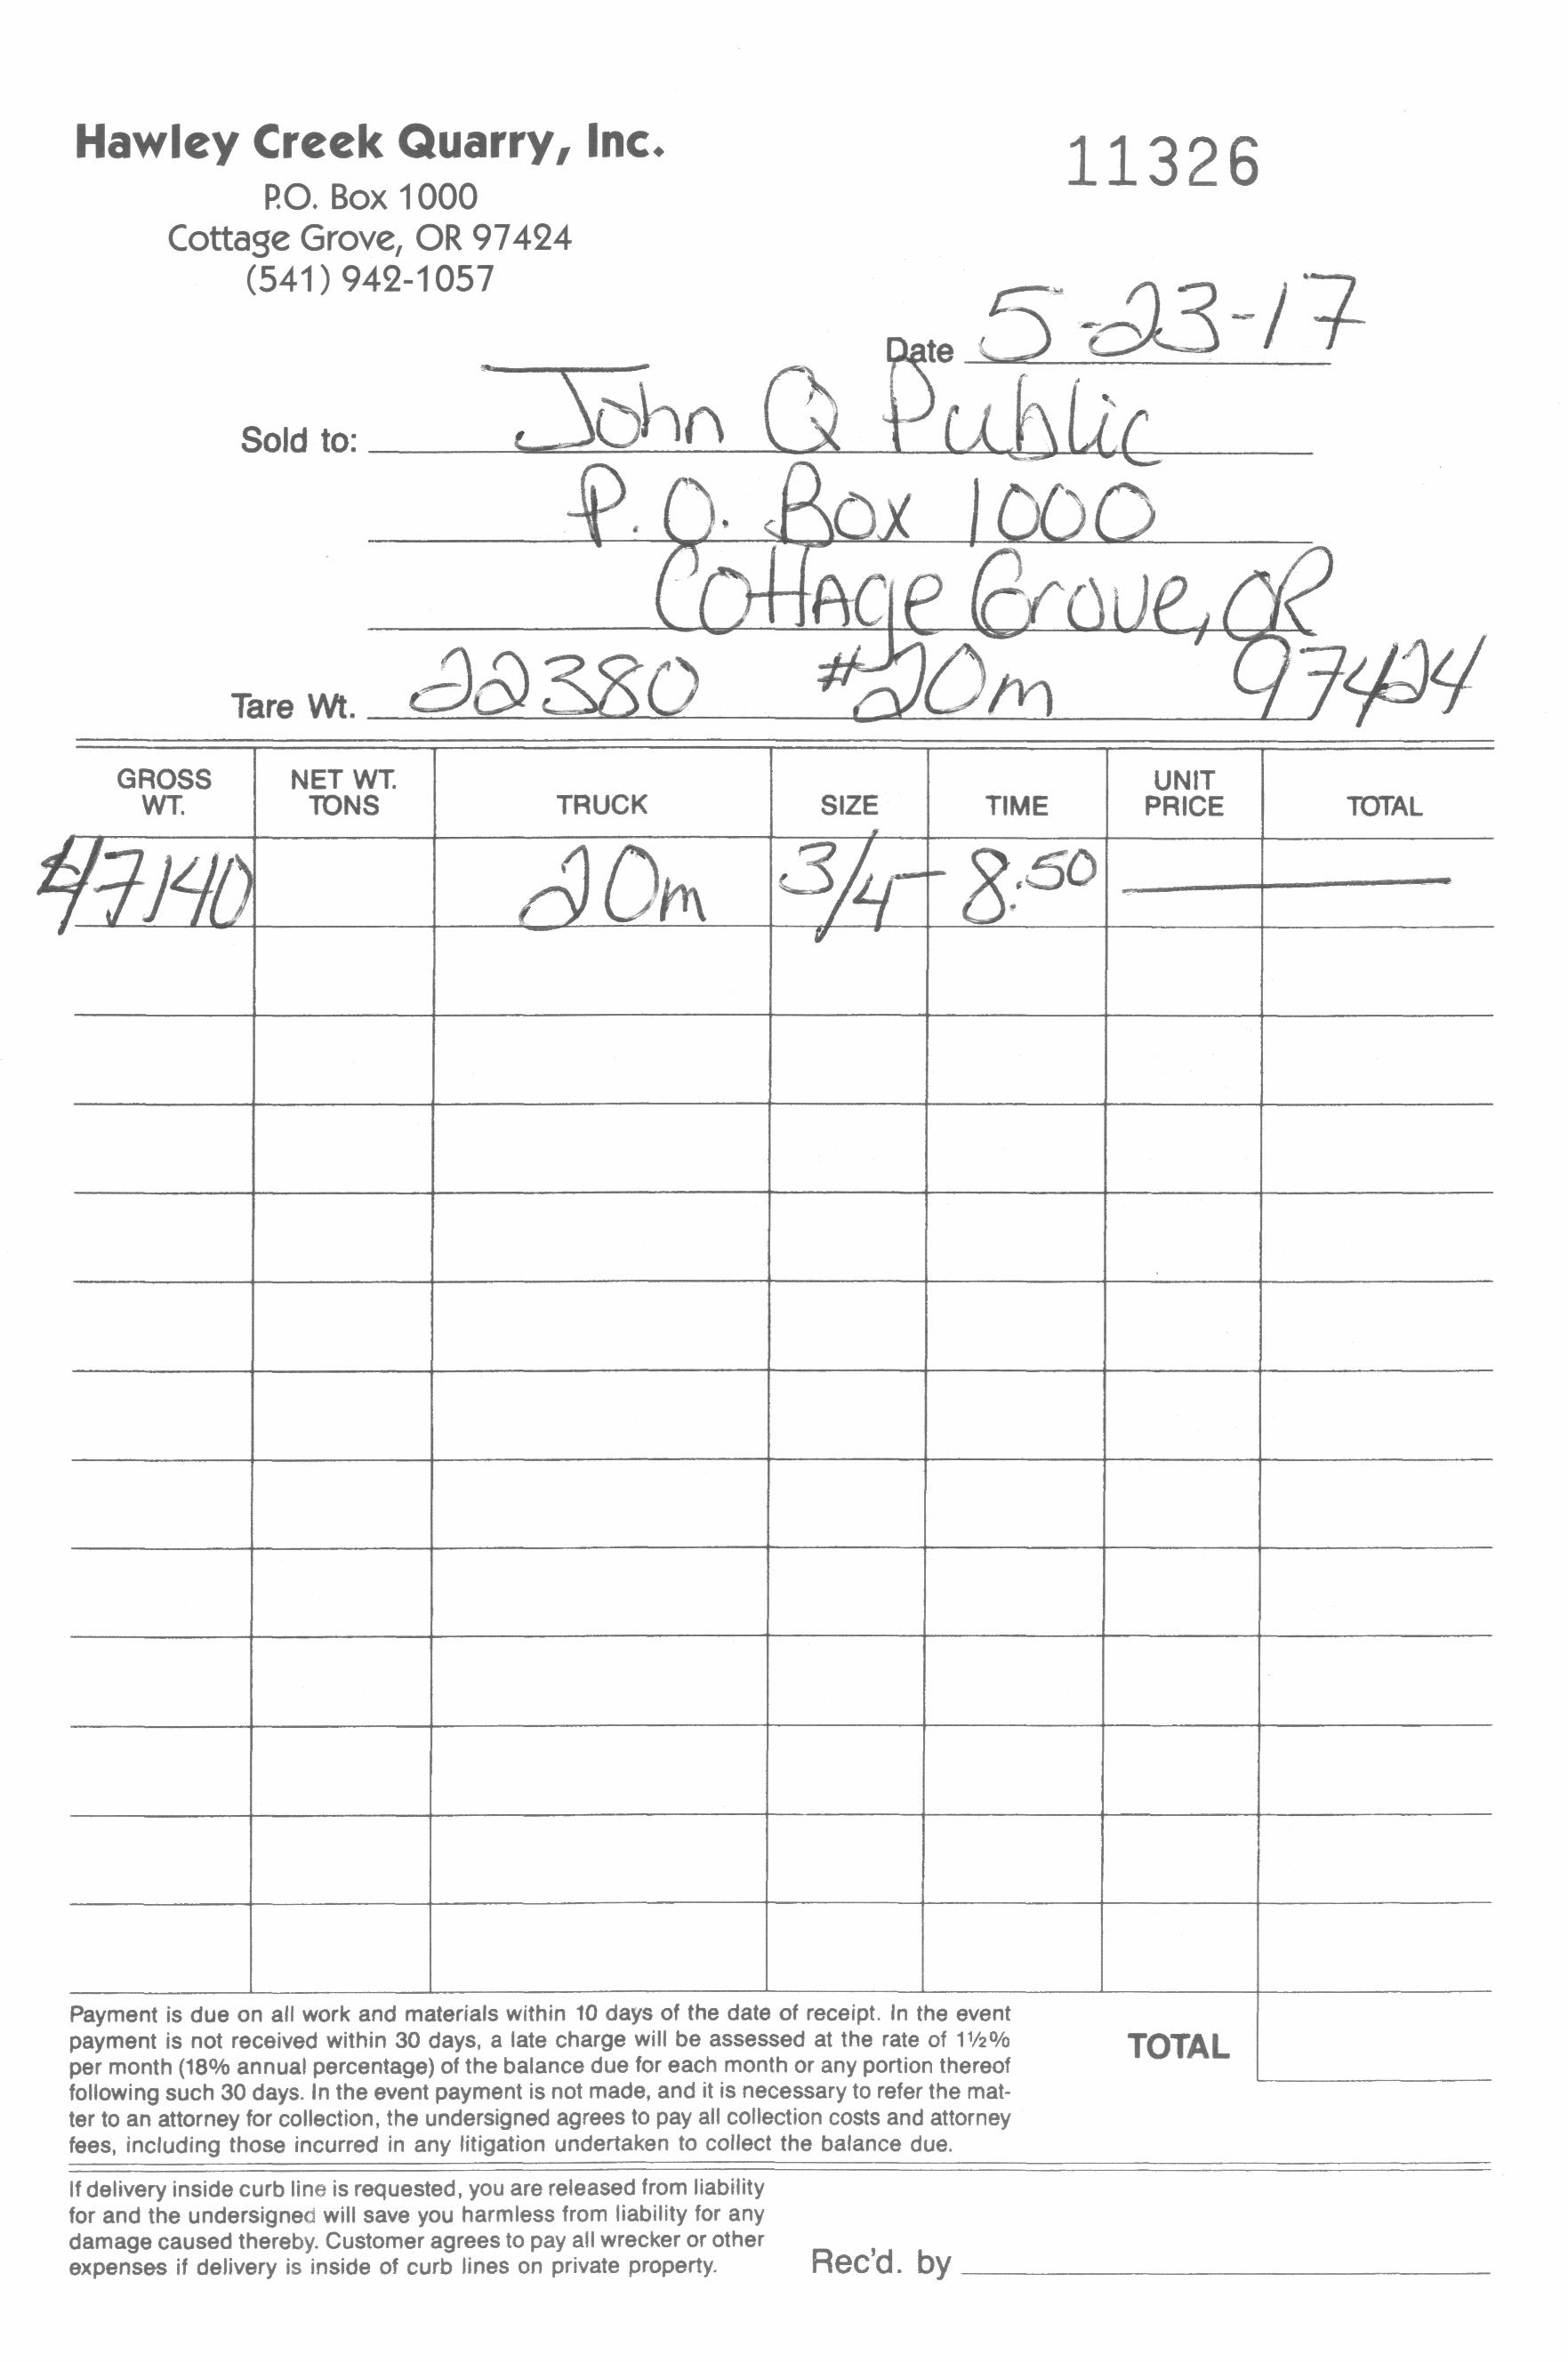 Hawley Creek Quarry, Inc.
11326
P.O. Box 1000
Cottage Grove, OR 97424
(541) 942-1057
Date 5-23-17
Sold to: John Q Public
P.O. Box 1000
Cottage Grove, OR
Tare Wt. 22380 #20m 97424
GROSS WT. NET WT. TONS TRUCK SIZE TIME UNIT PRICE TOTAL
47140 20m 3/4- 8:50
Payment is due on all work and materials within 10 days of the date of receipt. In the event
payment is not received within 30 days, a late charge will be assessed at the rate of 1½%
per month (18% annual percentage) of the balance due for each month or any portion thereof
following such 30 days. In the event payment is not made, and it is necessary to refer the mat-
ter to an attorney for collection, the undersigned agrees to pay all collection costs and attorney
fees, including those incurred in any litigation undertaken to collect the balance due.
TOTAL
If delivery inside curb line is requested, you are released from liability
for and the undersigned will save you harmless from liability for any
damage caused thereby. Customer agrees to pay all wrecker or other
expenses if delivery is inside of curb lines on private property.
Rec'd. by